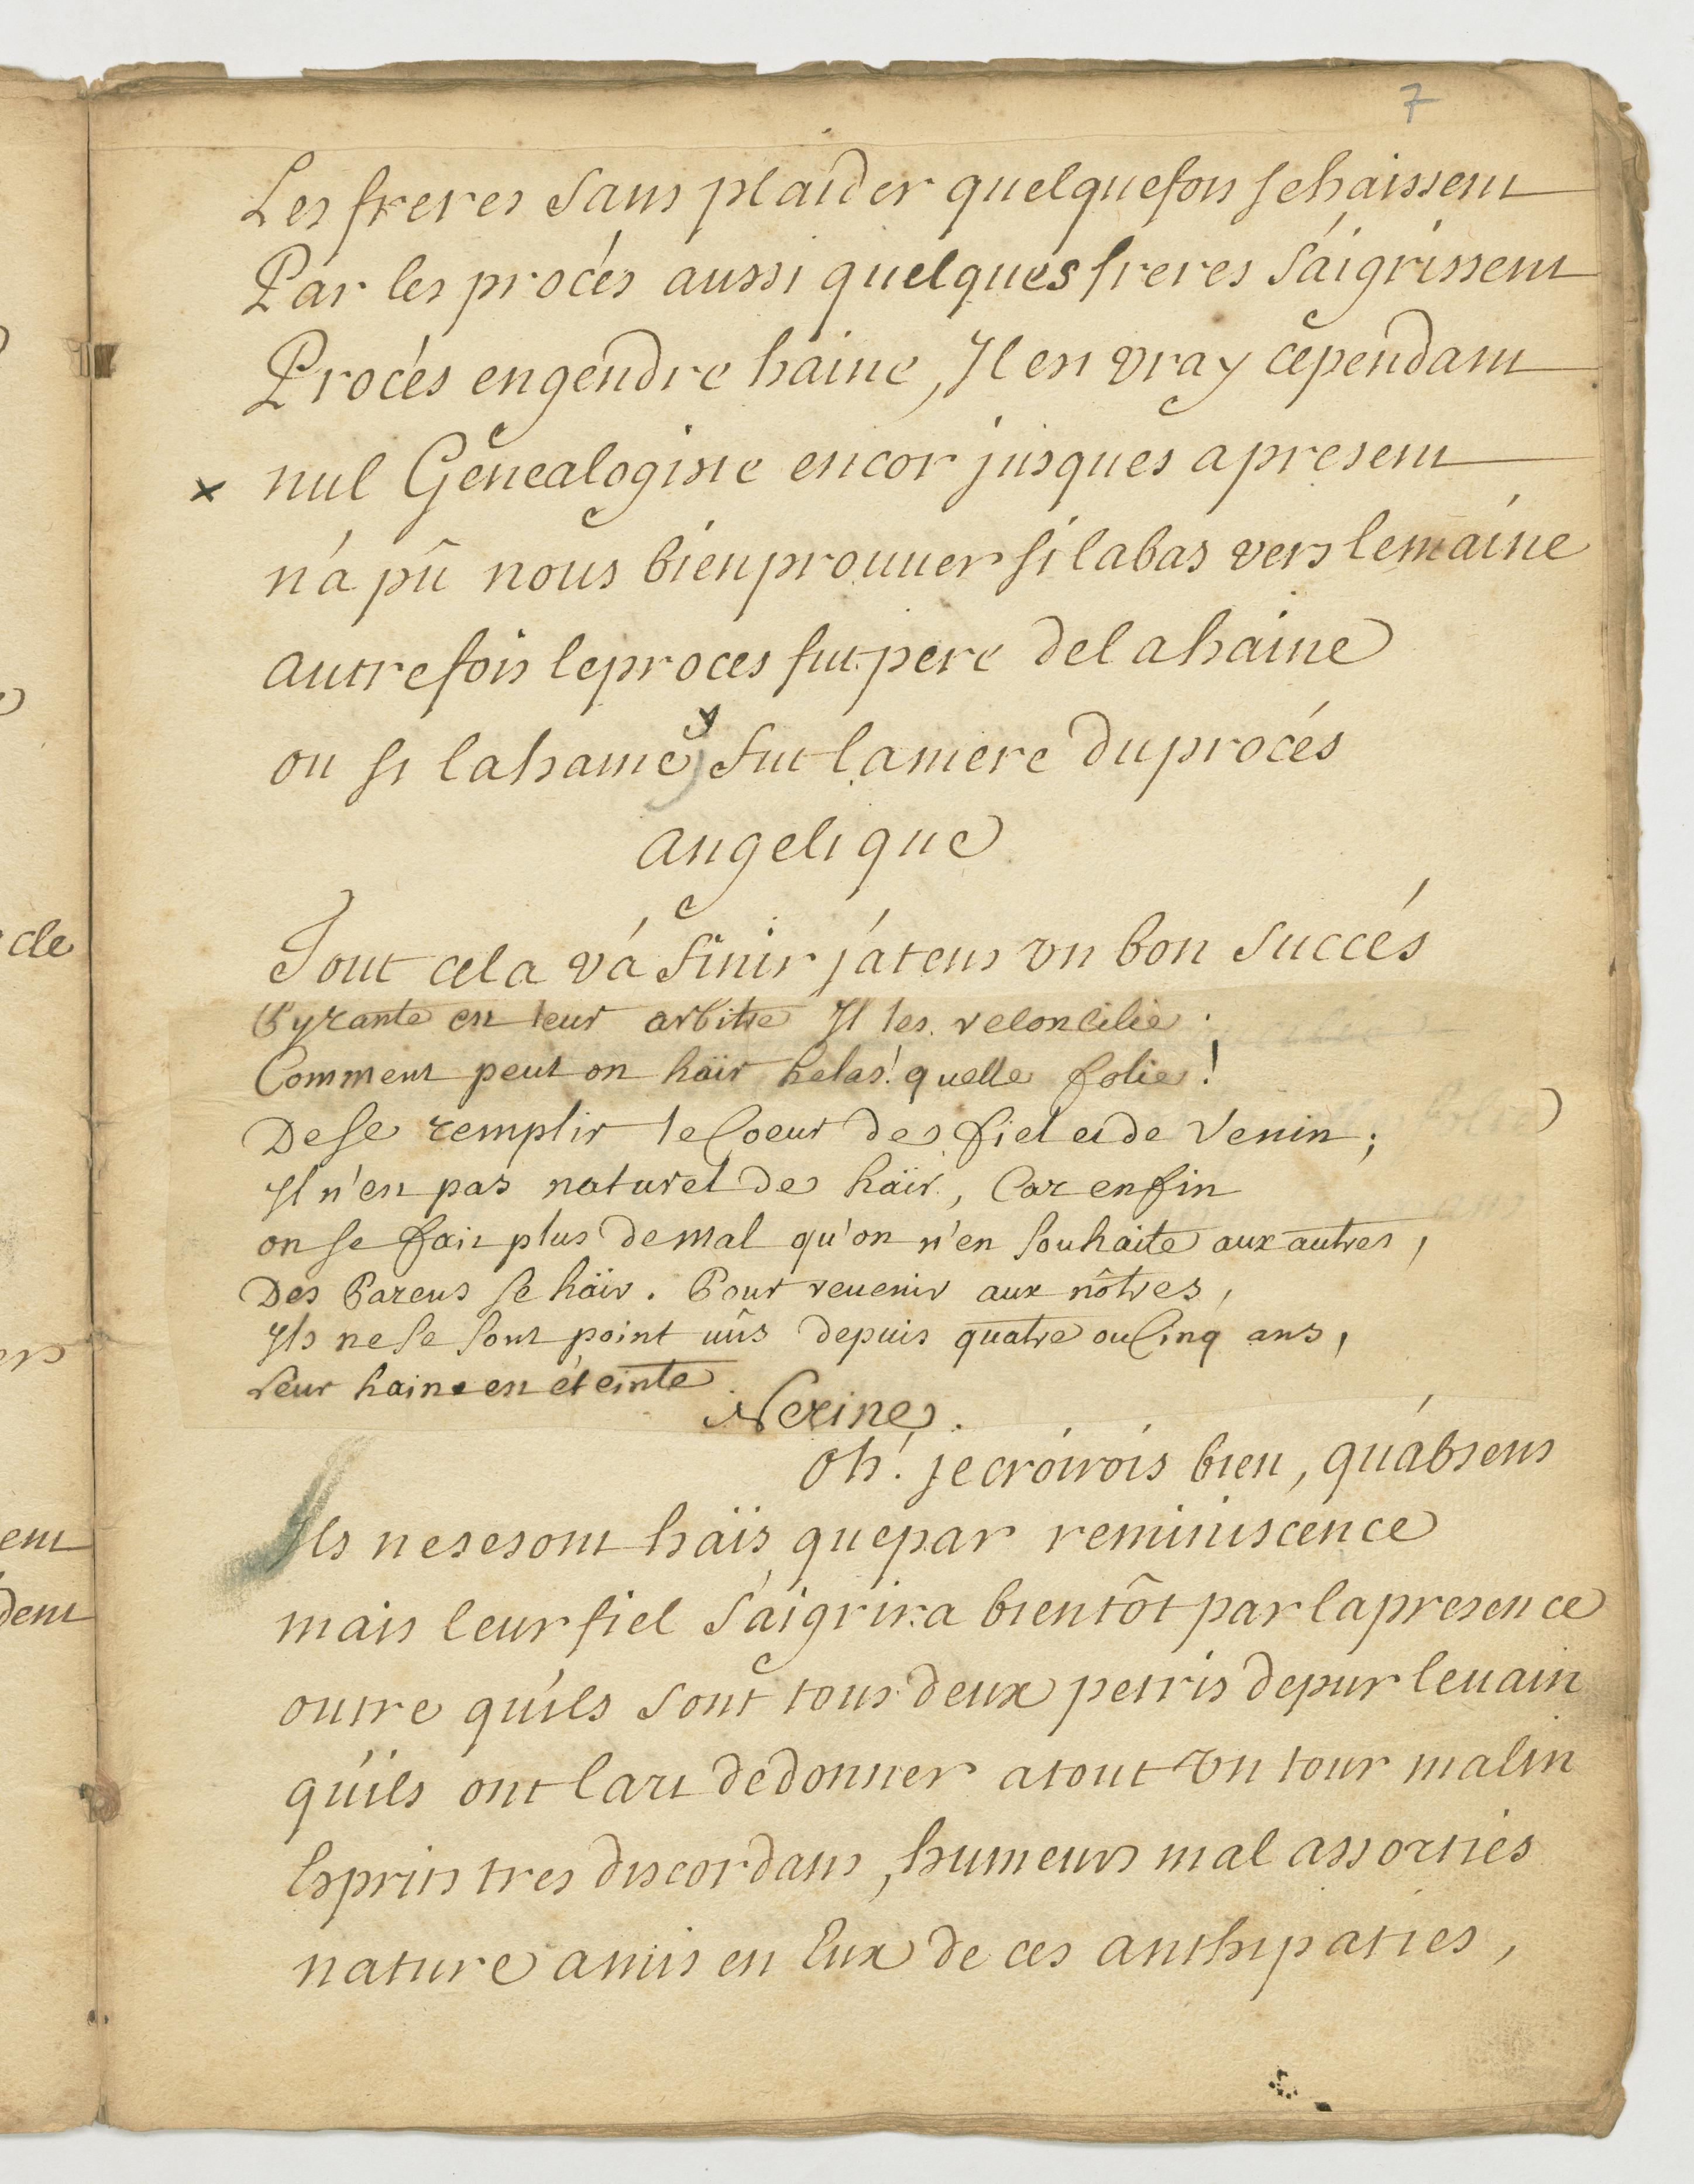 7
Les freres sans plaider quelquefois se haissent
Par les procés aussi quelques freres s'aigrissent
Procés engendre haine, Il est vray cependant
x nul Généalogiste encor jusques a present
n'a pû nous bien prouuer si labas vers le maine
autrefois le proces fut pere de la haine
ou si la haine fut la mere du procés
angelique
Tout cela va finir j'atens vn bon succés
Pyrante est leur arbitre Il les reconcilie.
Comment peut on haïr helas! quelle folie!
De se remplir le Coeur de fiel et de Venin;
Il n'est pas naturel de haïr, Car enfin
on se fait plus de mal qu'on n'en souhaite aux autres,
Des Parens se haïr. Pour reuenir aux nôtres,
Ils ne se sont point uûs depuis quatre ou Cinq ans,
leur haine est éteinte
Nerine.
Oh! je croirois bien, qu'absens
Ils ne se sont haïs que par reminiscence
mais leur fiel s'aigrira bientôt par la presence
outre qu'ils sont tous deux petris de pur leuain
qu'ils ont l'art de donner a tout vn tour malin
Esprits tres discordans, humeurs mal assorties
nature a mis en Eux de ces anthipaties,
cle
ent
dent